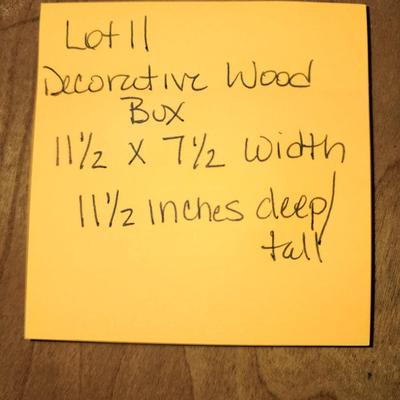 Lot 11
Decorative Wood
Box
11 1/2 x 7 1/2 width
11 1/2 inches deep/
tall